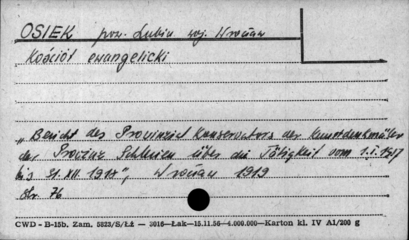 OSIEK pow. Lubin woj. Wrocław
Kościół ewangelicki
„Bericht des Provinzial Konservators der Kunstdenkmäler
der Provinz Schlesien über die Tätigkeit vom 1.I.1917
bis 31.XII.1918", Wrocław 1919
Str. 76
CWD - B-15b. Zam. 5823/S/Łź — 2016—Łak—15.11.56—4.000.000—Karton kl. IV A1/200 g